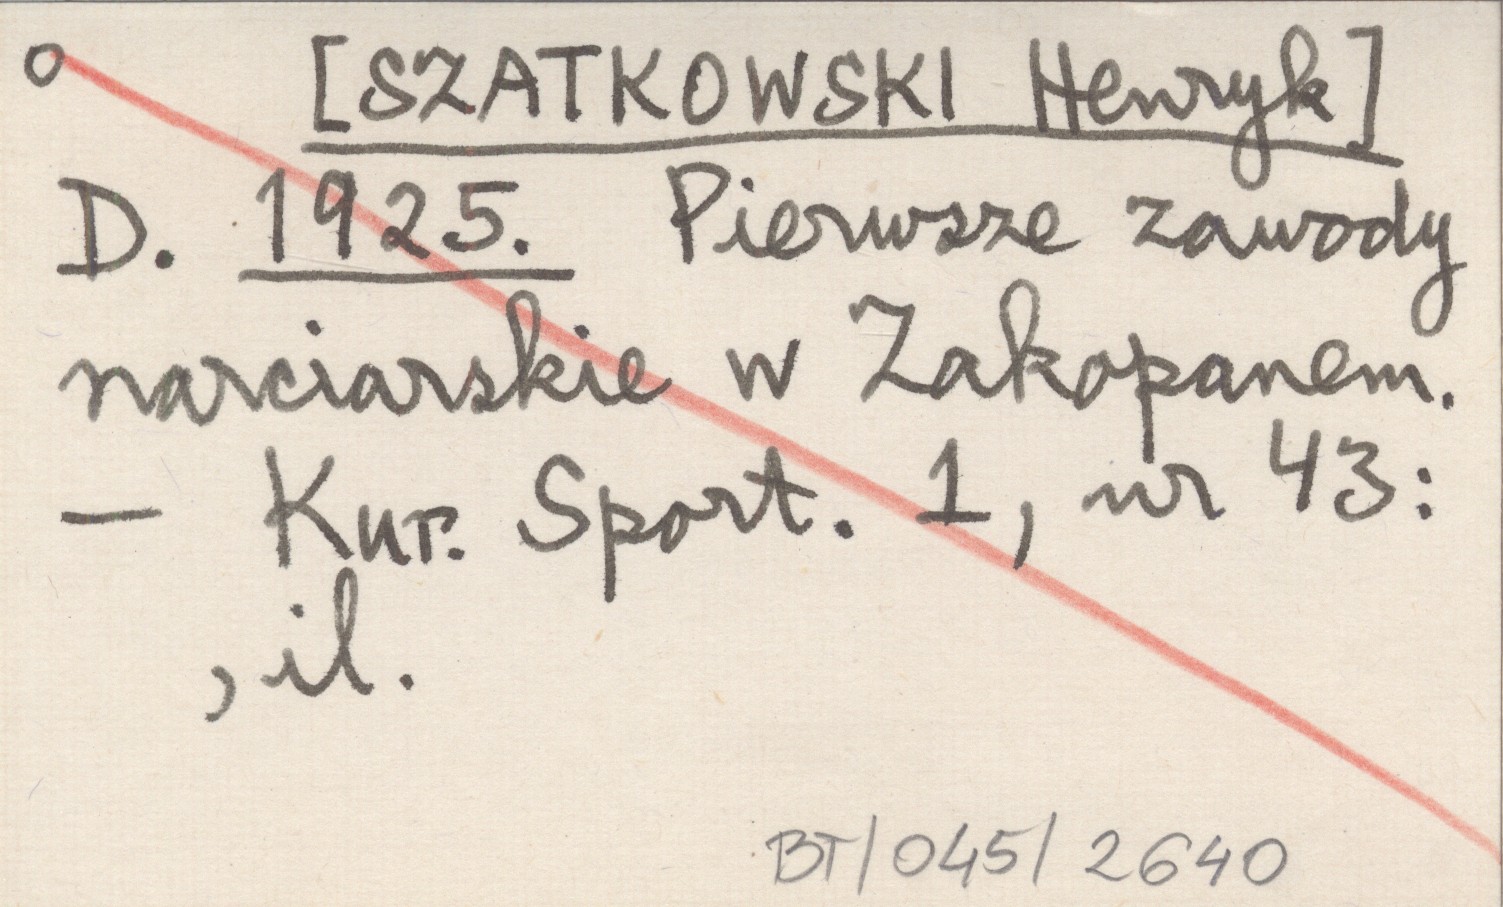 o [SZATKOWSKI Henryk]
D. 1925. Pierwsze zawody
narciarskie w Zakopanem.
— Kur. Sport. 1, nr 43:
, il.
BT/045/2640